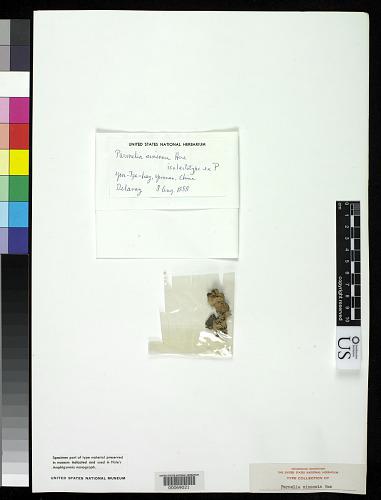 UNITED STATES NATIONAL HERBARIUM
Parmelia sinensis Hue
isolectotype ex P
Yunnan, China
Delavay 8 Aug. 1888
copyright reserved
US
Specimen part of type material preserved
in museum indicated and used in Hale's
Amphigymnia monograph.
UNITED STATES NATIONAL MUSEUM
00069021
THE UNITED STATES NATIONAL HERBARIUM
TYPE COLLECTION OF
Parmelia sinensis Hue